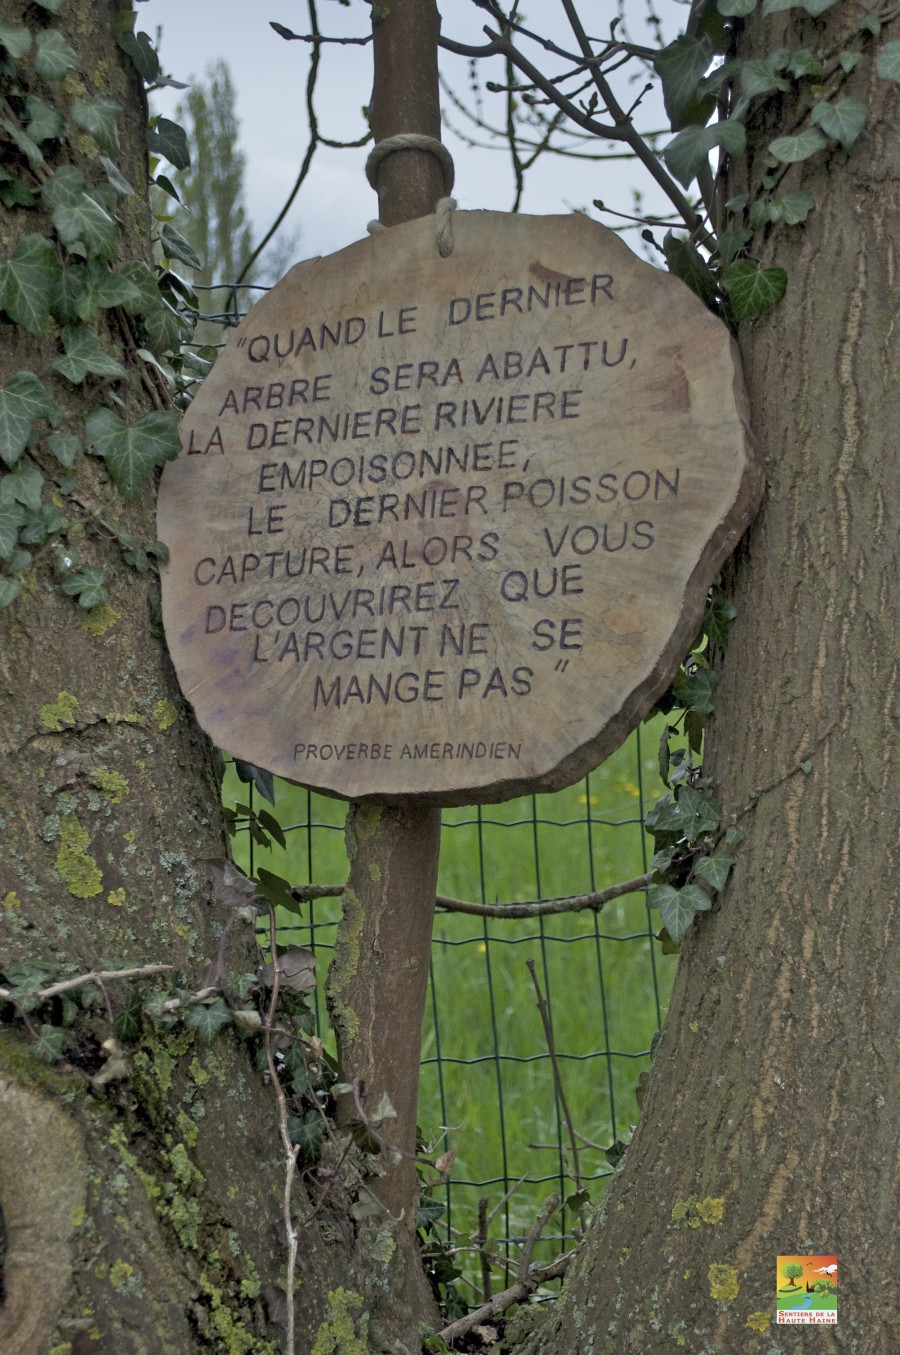 "QUAND LE DERNIER
ARBRE SERA ABATTU,
LA DERNIERE RIVIERE
EMPOISONNEE,
LE DERNIER POISSON
CAPTURE, ALORS VOUS
DECOUVRIREZ QUE
L'ARGENT NE SE
MANGE PAS"
PROVERBE AMERINDIEN
SENTIERS DE LA
HAUTE HAINE